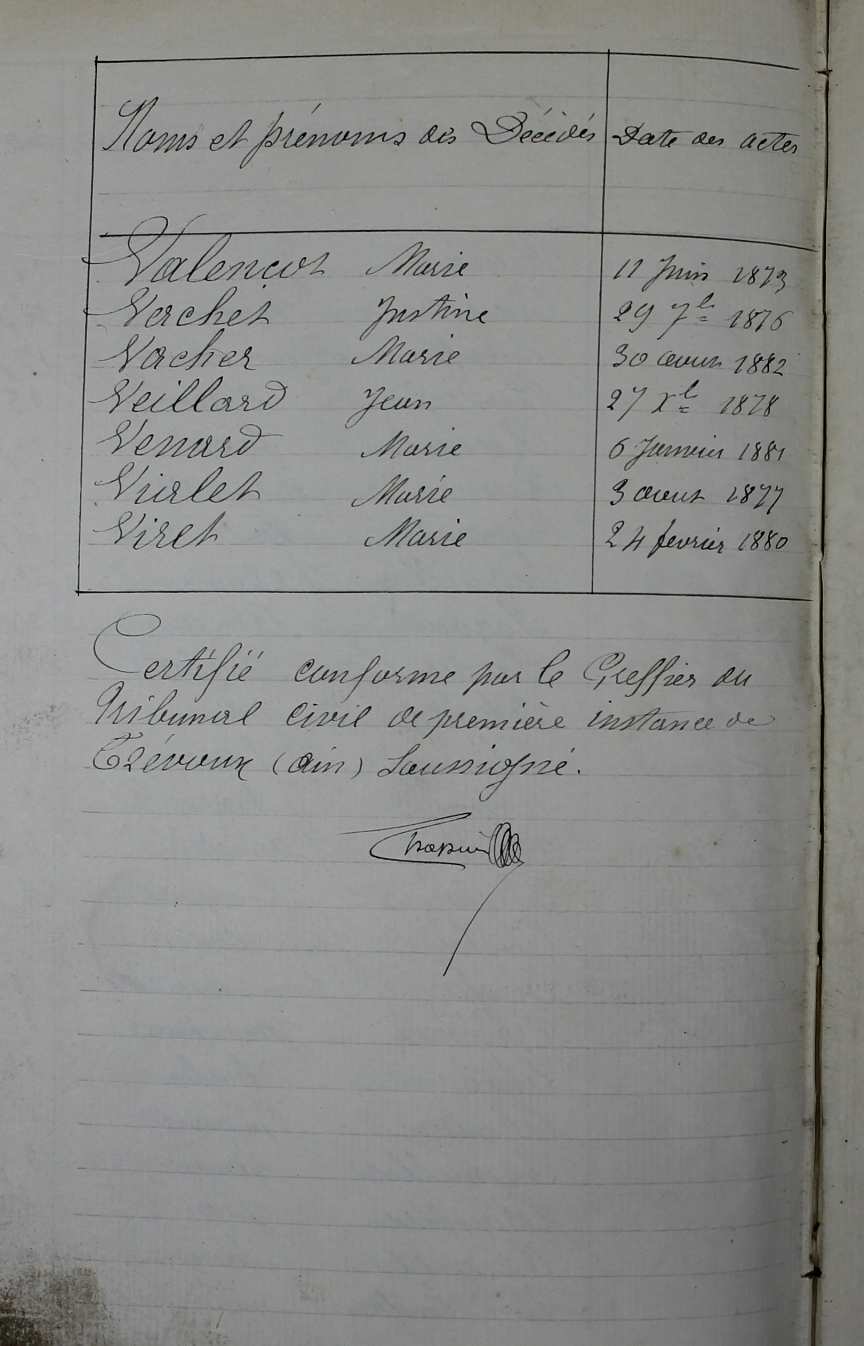 Noms et prénoms des Décédés Date des actes
Valençot Marie 11 Juin 1873
Vachet Justine 29 7b 1876
Vacher Marie 30 aout 1882
Veillard Jean 27 Xb 1878
Venard Marie 6 Janvier 1881
Violet Marie 3 aout 1877
Viret Marie 24 fevrier 1880
Certifié conforme par le Greffier du
Tribunal civil de première instance de
Trévoux (ain) Soussigné.